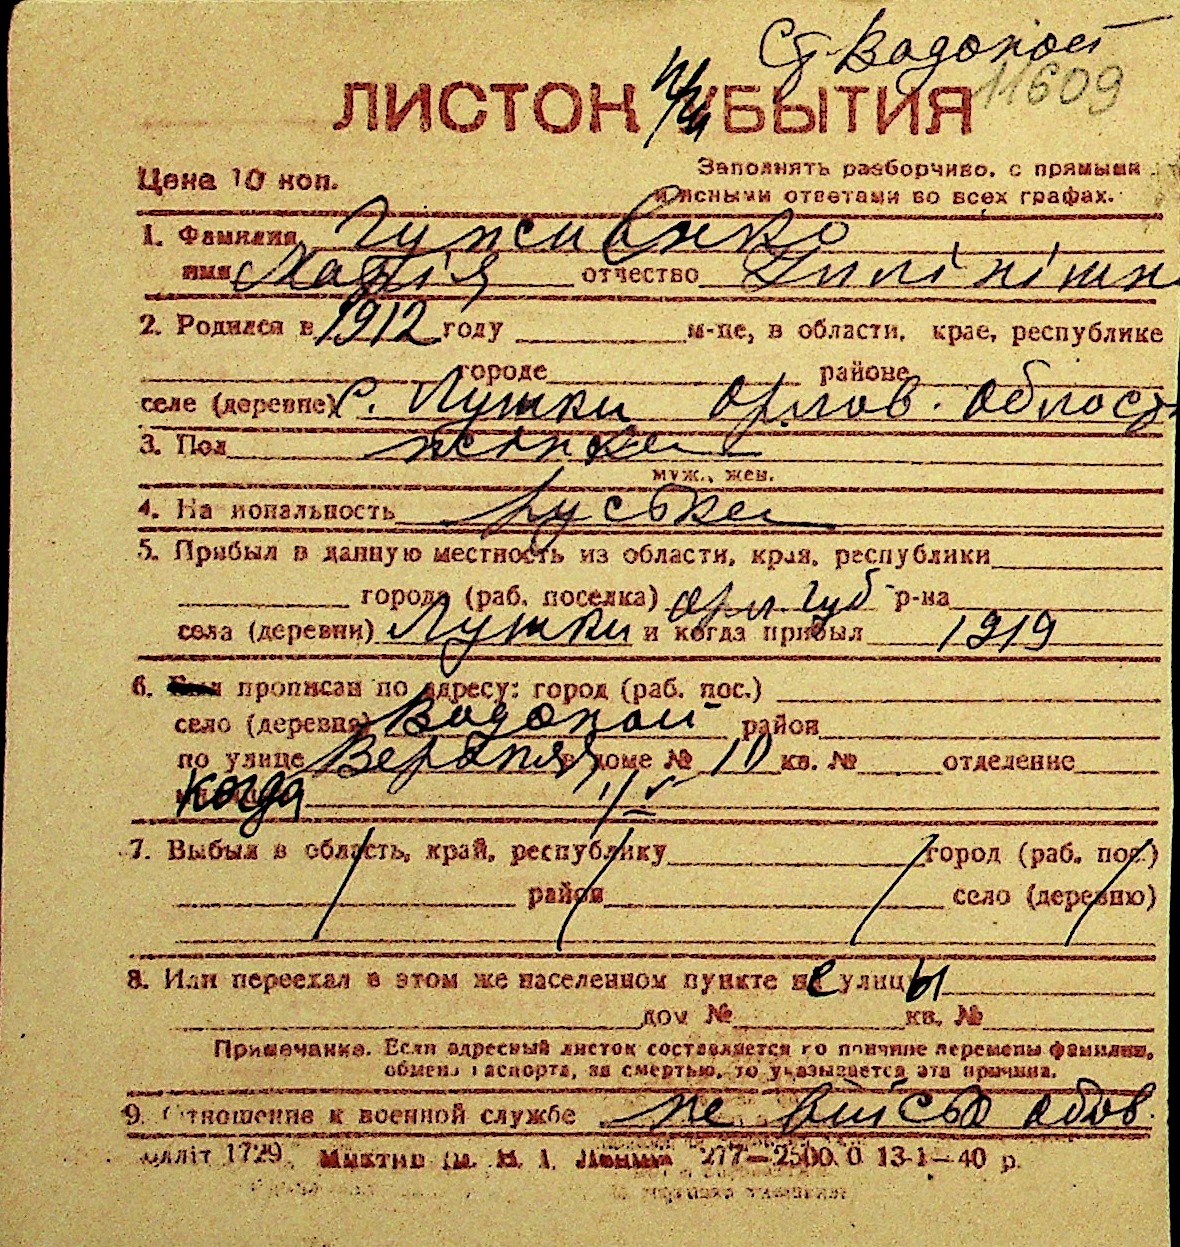 Ст. Водопой
11609
ЛИСТОК УБЫТИЯ
Цена 10 коп.
Заполнять разборчиво, с прямыми
и ясными ответами во всех графах.
1. Фамилия
имя Марія отчество
2. Родился в 1912 году м-це, в области, крае, республике
городе районе
селе (деревне) с. Лужки Орлов. област
3. Пол жінка
муж., жен.
4. На иональность руська
5. Прибыл в данную местность из области, края, республики
города (раб. поселка) Орл губ р-на
села (деревни) Лужки и когда прибыл 1919
6. прописан по адресу: город (раб. пос.)
село (деревня) Водопой район
по улице в доме № 10 кв. № отделение
когда
7. Выбыл в область, край, республику город (раб. пос.)
район село (деревню)
8. Или переехал в этом же населенном пункте не улицы
дом № кв. №
Примечание. Если адресный листок составляется по причине перемены фамилии,
обмена паспорта, за смертью, то указывается эта причина.
9. Отношение к военной службе не військо обов.
1729. 277—2500.0 13-1—40 р.